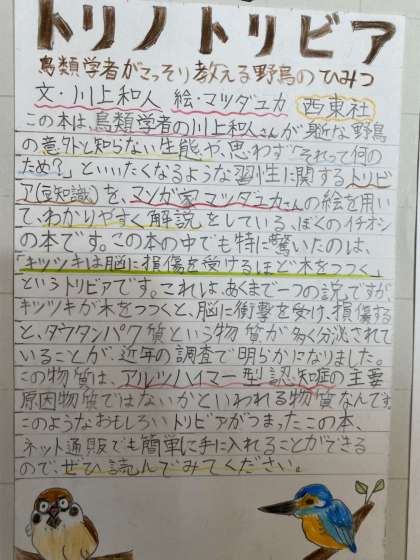 トリノトリビア
鳥類学者がこっそり教える野鳥のひみつ
文・川上和人 絵・マツダユカ 西東社
この本は、鳥類学者の川上和人さんが身近な野鳥
の意外と知らない生態や、思わず「それって何の
ため?」といいたくなるような習性に関するトリビ
ア(豆知識)を、マンガ家マツダユカさんの絵を用い
て、わかりやすく解説をしている、ぼくのイチオシ
の本です。この本の中でも特に驚いたのは、
「キツツキは脳に損傷を受けるほど木をつつく」
というトリビアです。これは、あくまで一つの説ですが、
キツツキが木をつつくと、脳に衝撃を受け、損傷する
と、タウタンパク質という物質が多く分泌されて
いることが、近年の調査で明らかになりました。
この物質は、アルツハイマー型認知症の主要
原因物質ではないかといわれる物質なんです。
このようなおもしろいトリビアがつまったこの本、
ネット通販でも簡単に手に入れることができる
ので、ぜひ読んでみてください。